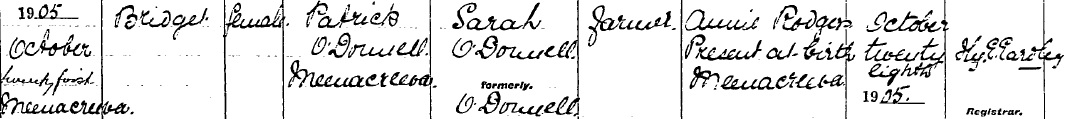 1905 Bridget female Patrick Sarah Farmer Annie Rodgers October
October O'Donnell O'Donnell Present at birth twenty Hy. E. Eardley
twenty first Meenacreeva. formerly. Meenacreeva eighth
Meenacreeva. O'Donnell 1905.
Registrar.